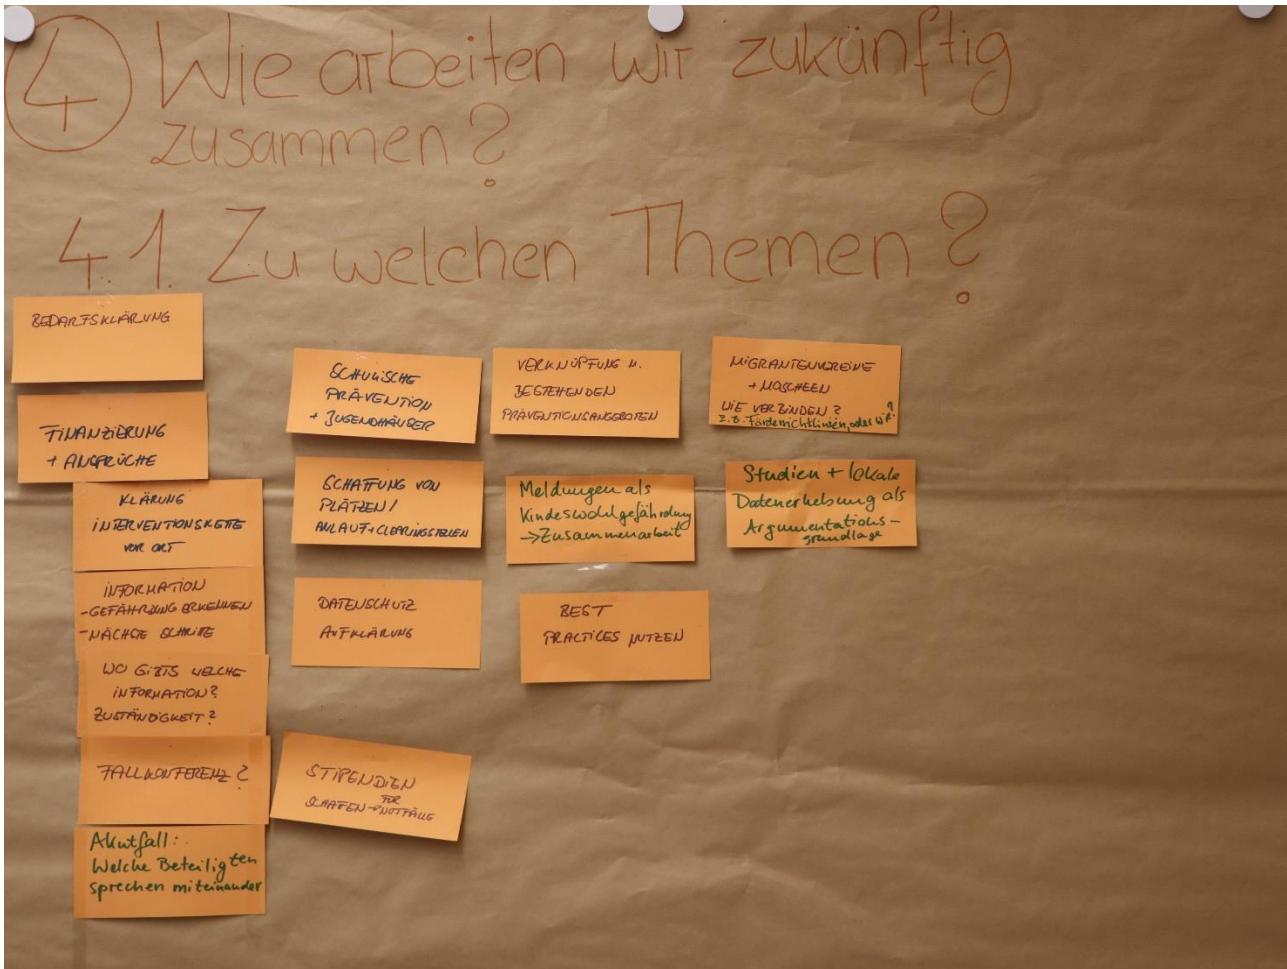 4 Wie arbeiten wir zukünftig
zusammen?
4.1. Zu welchen Themen?
BEDARFSKLÄRUNG
FINANZIERUNG
+ ANSPRÜCHE
KLÄRUNG
INTERVENTIONSKETTE
VOR ORT
INFORMATION
-GEFÄHRDUNG ERKENNEN
-NÄCHSTE SCHRITTE
WO GIBTS WELCHE
INFORMATION?
ZUSTÄNDIGKEIT?
FALLKONFERENZ?
Akutfall:
Welche Beteiligten
sprechen miteinander
SCHULISCHE
PRÄVENTION
+ JUGENDHÄUSER
SCHAFFUNG VON
PLÄTZEN/
ANLAUF+CLEARINGSTELLEN
DATENSCHUTZ
AUFKLÄRUNG
STIPENDIEN
FÜR
SCHAFFEN → NOTFÄLLE
VERKNÜPFUNG M.
BESTEHENDEN
PRÄVENTIONSANGEBOTEN
Meldungen als
Kindeswohlgefährdung
→Zusammenarbeit
BEST
PRACTICES NUTZEN
MIGRANTENVEREINE
+ MOSCHEEN
WIE VERBINDEN?
z.B. Förderrichtlinien, oder wie?
Studien + lokale
Datenerhebung als
Argumentations-
grundlage